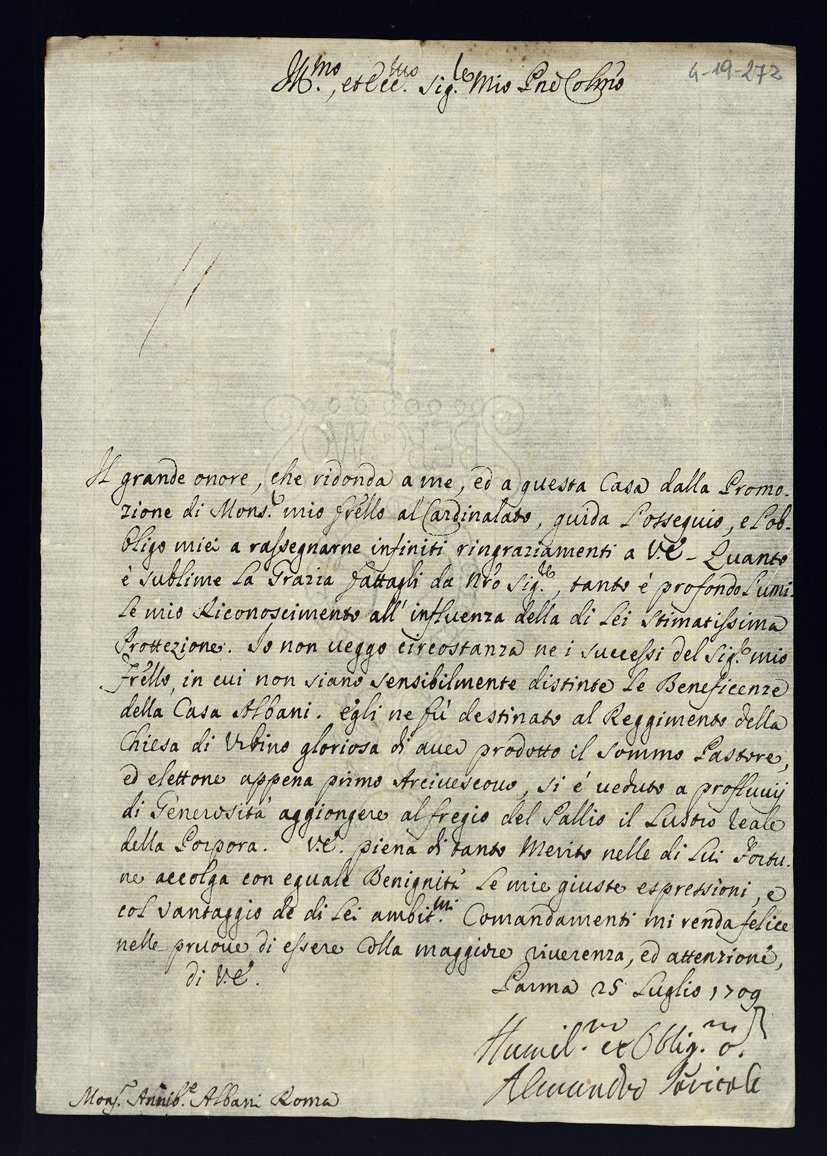 4-19-272
Ill.mo, et Ecc.mo Sig.re Mio Pne Colmo
Il grande onore, che ridonda a me, ed a questa Casa dalla Promo-
zione di Mons.r mio frello al Cardinalato, guida l'ossequio, e l'ob-
bligo miei a rassegnarne infiniti ringraziamenti a V.E. Quanto
è sublime la Grazia fattagli da Nro Sig.re, tanto è profondo l'umi-
le mio Riconoscimento all'influenza della di Lei Stimatissima
Prottezione. Io non veggo circostanza ne i successi del Sig.r mio
Frello, in cui non siano sensibilmente distinte le Beneficenze
della Casa Albani. Egli ne fù destinato al Reggimento della
Chiesa di Urbino gloriosa di aver prodotto il sommo Pastore,
ed elettone appena primo Arcivescovo, si è veduto a profluvij
di Generosità aggiongere al fregio del Pallio il Lustro reale
della Porpora. V.E. piena di tanto Merito nelle di Lui Fortu-
ne accolga con eguale Benignità le mie giuste espressioni, e
col vantaggio de di Lei ambit.mi Comandamenti mi renda felice
nelle pruove di essere colla maggiore riverenza, ed attenzione,
di V.E.
Parma 25 Luglio 1709
Humil.mo et Oblig.mo
Mons.r Annib.e Albani Roma